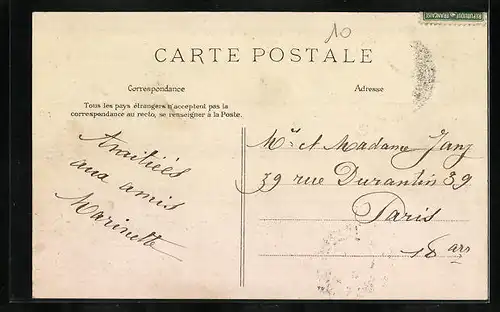 10
REPUBLIQUE FRANÇAISE
CARTE POSTALE
Correspondance
Adresse
Tous les pays étrangers n'acceptent pas la
correspondance au recto, se renseigner à la Poste.
Amitiés
aux amis
Marinette
Mr et Madame
39 rue Durantin 39
Paris
18 arr